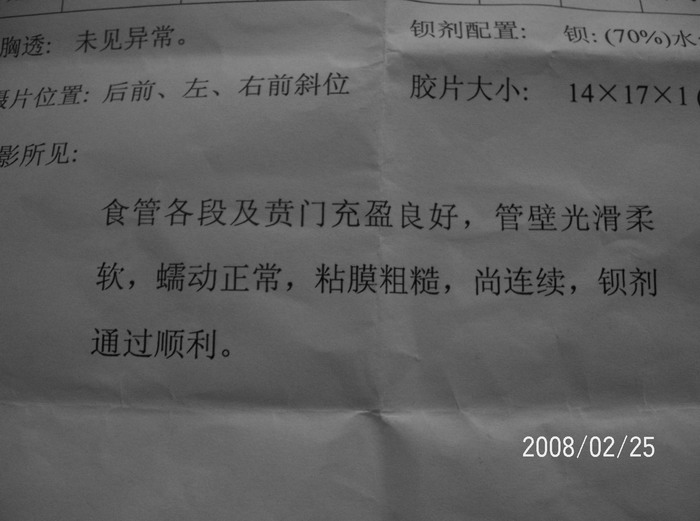 胸透: 未见异常。
钡剂配置: 钡: (70%)水
摄片位置: 后前、左、右前斜位
胶片大小: 14×17×1 (
影所见:
食管各段及贲门充盈良好，管壁光滑柔
软，蠕动正常，粘膜粗糙，尚连续，钡剂
通过顺利。
2008/02/25